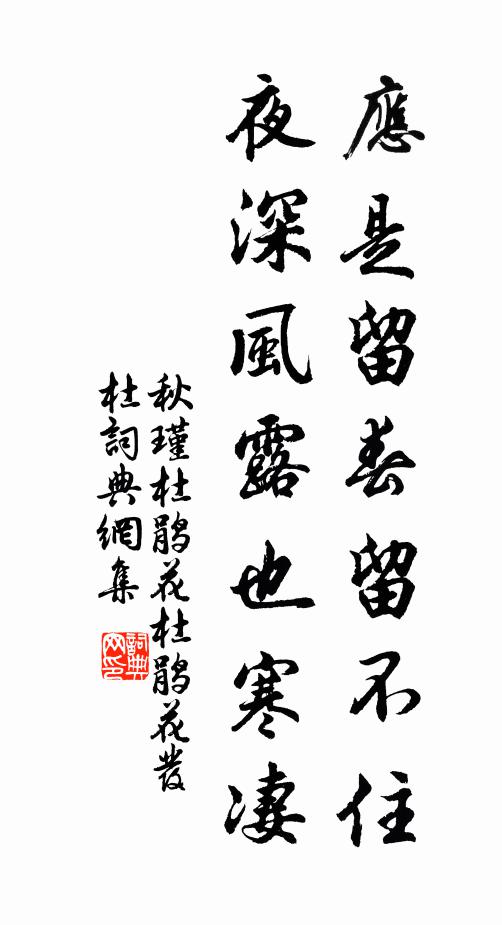 應是留春留不住
夜深風露也寒凄
秋瑾杜鵑花杜鵑花發
杜詞典網集
詞典网印